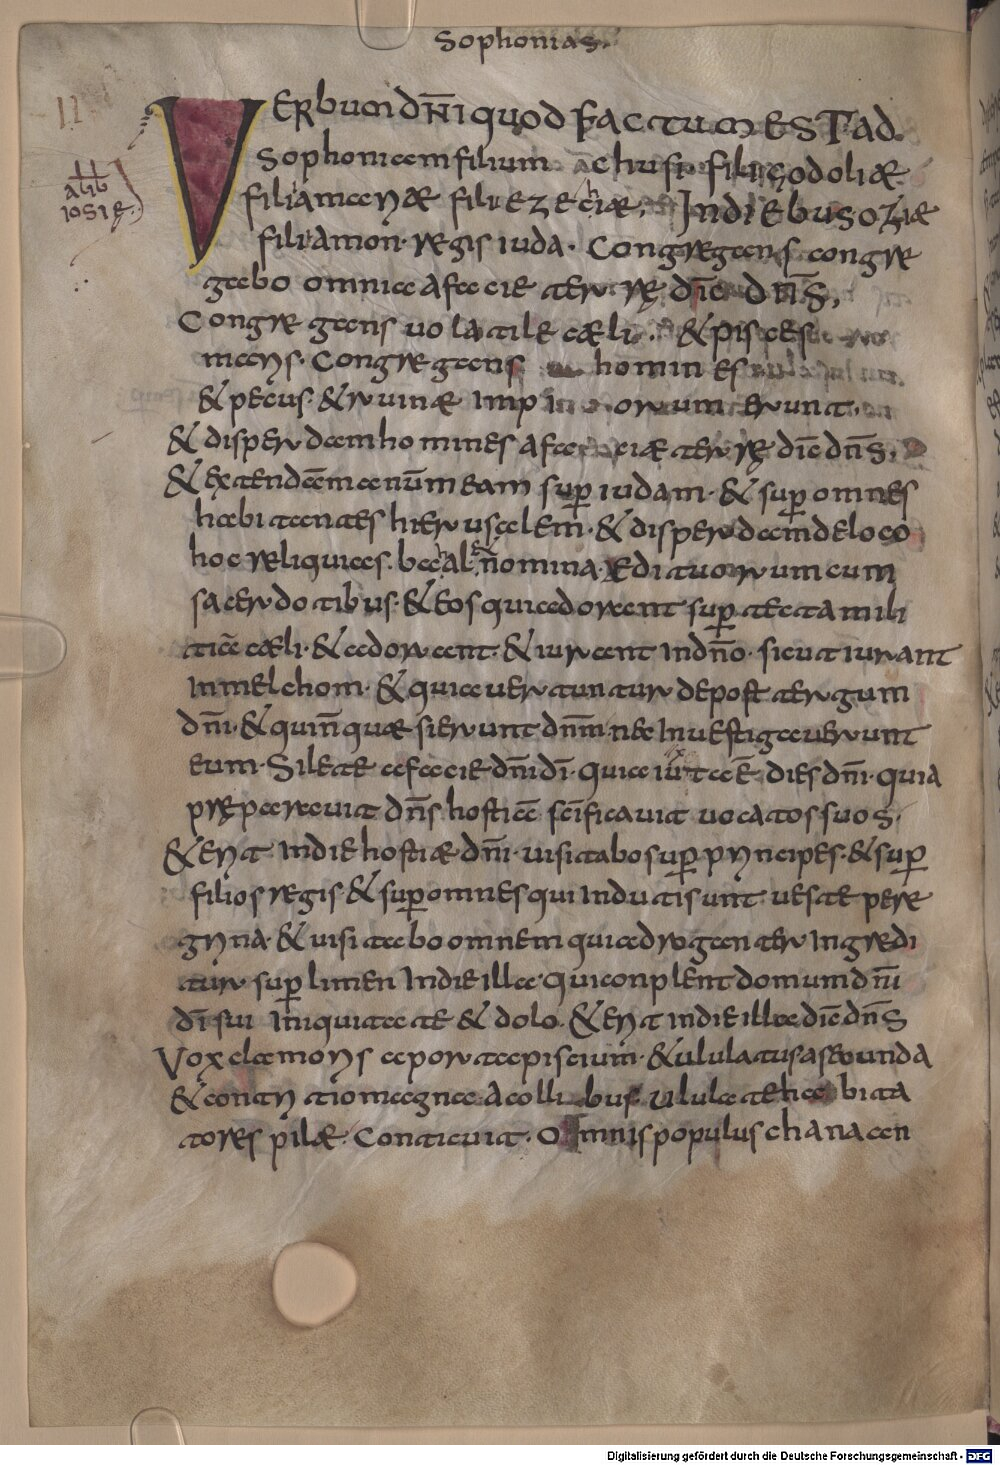 Sophonias.
II
VERbum dn̄i quod factum EST ad.
Sophoniam filium chusi fili godoliæ
alib
iosię
fili amariæ fili ezechiæ, In diebus oziæ
fili amon· regis iuda· Congregans congre
gabo omnia a facie terrę dic̄ dn̄s,
Congregans uolatile cæli· & pisces
maris· Congregans homines
& pecus· & ruinæ impiorum erunt·
& disperdam homines a faciæ terrę dic̄ dn̄s,
& extendam manūm eam sup̱ iudam· & sup̱ omnes
habitantes hierusalem̄· & disperdam de loco
hoc reliquias· bahal & n̄omina ædituorum cum
sacerdotibus· & eos qui adorant sup̱ tecta mili
tiā cæli· & adorant· & iurant in dn̄o· sicut iurant
in melchom· & qui auertuntur de post tergum
dn̄i· & qui n̄ quæsierunt dn̄m nec inuestigauerunt
eum· Silete a facie dn̄i dī· quia iuxta ē dies dn̄i· quia
pręparauit dn̄s hostiā sc̄ificauit uocatos suos·
& erit in die hostiæ dn̄i· uisitabo sup̱ principes· & sup̱
filios regis & sup̱ omnes qui induti sunt ueste pere
grina· & uisitabo omnem qui adroganter ingredi
tur· sup̱ limen in die illa· qui conplent domum dn̄i
dī sui iniquitate & dolo· & erit in die illa dic̄ dn̄s
Vox clamoris a porta piscium· & ululatus a secunda
& contritio magna a collibus· ululate habita
tores pilæ· Conticuit· Omnis populus chanaan
Digitalisierung gefördert durch die Deutsche Forschungsgemeinschaft - DFG